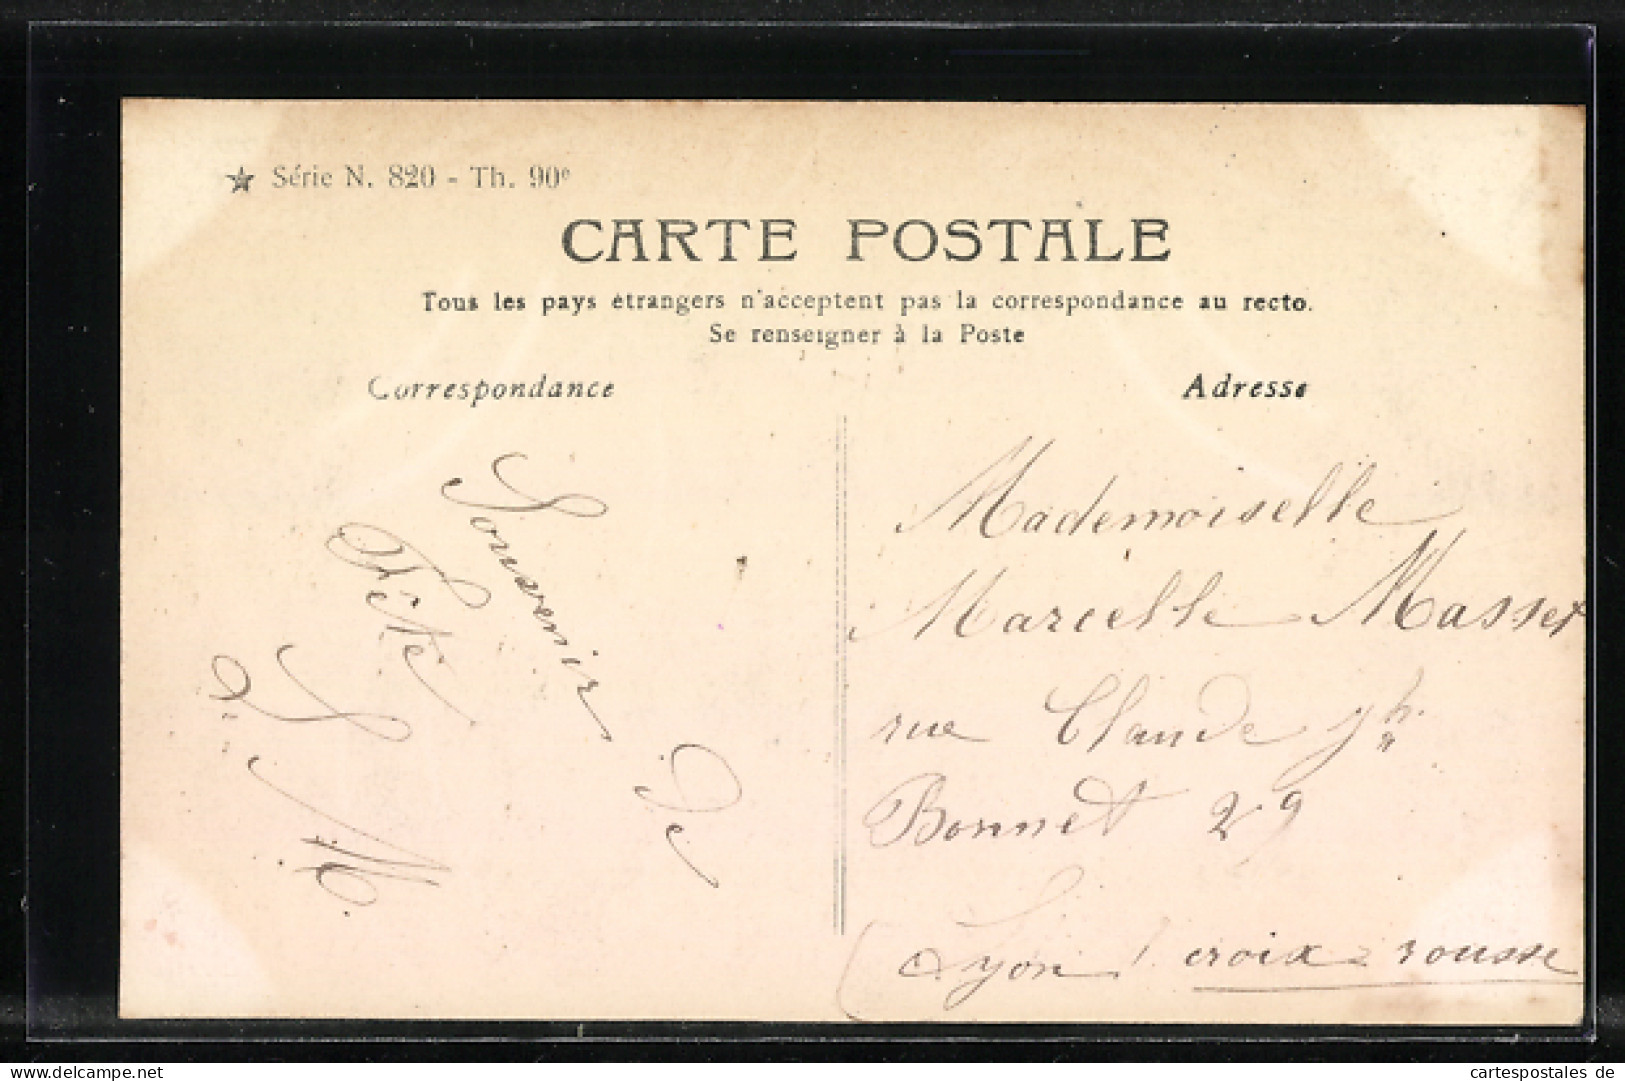 ★ Série N. 820 - Th. 90e
CARTE POSTALE
Tous les pays étrangers n'acceptent pas la correspondance au recto.
Se renseigner à la Poste
Correspondance
Adresse
Souvenir de
Fête
Mademoiselle
Marcelle Masset
rue Claude Jh
Bonnet 29
Lyon croix-rousse
www.delcampe.net
cartespostales de